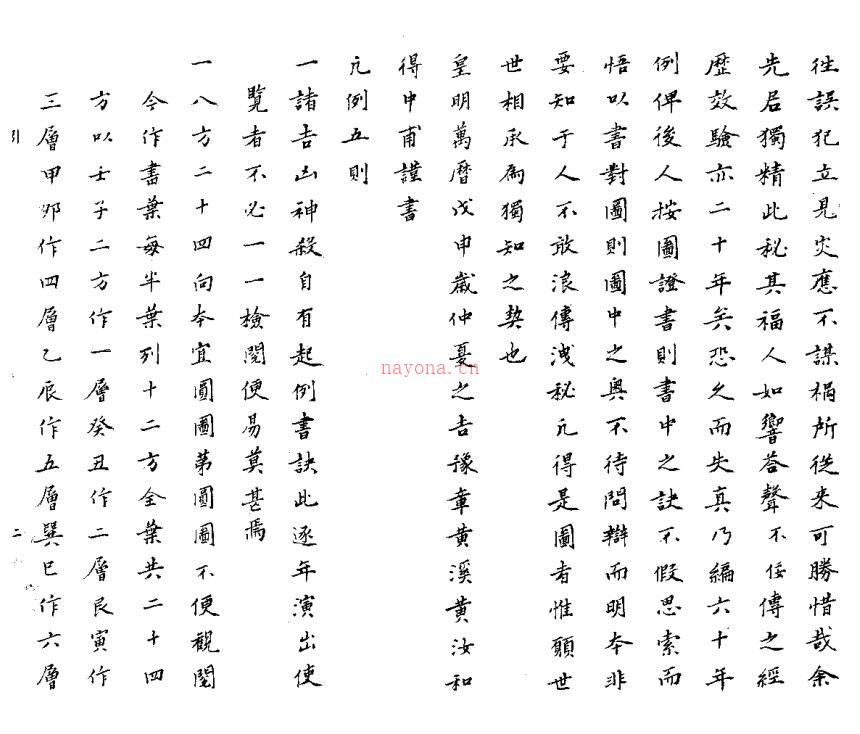 徃誤犯立見灾應不謀禍所從来可勝惜哉余
先君獨精此秘其福人如響荅聲不佞傳之經
歷效驗亦二十年矣恐久而失真乃編六十年
例俾後人按圖證書則書中之訣不假思索而
悟以書對圖則圖中之奧不待問辯而明夲非
要知于人不敢浪傳洩秘凢得是圖者惟願世
世相承爲獨知之契也
皇明萬曆戊申歲仲夏之吉豫章黄溪黄汝和
得中甫謹書
凢例五則
一諸吉凶神殺自有起例書訣此逐年演出使
覽者不必一一檢閱便易莫甚焉
一八方二十四向夲宜圓圖苐圓圖不便觀閱
今作書葉每半葉列十二方全葉共二十四
方以壬子二方作一層癸丑作二層艮寅作
三層甲卯作四層乙辰作五層巽巳作六層
引
二
nayona.cn